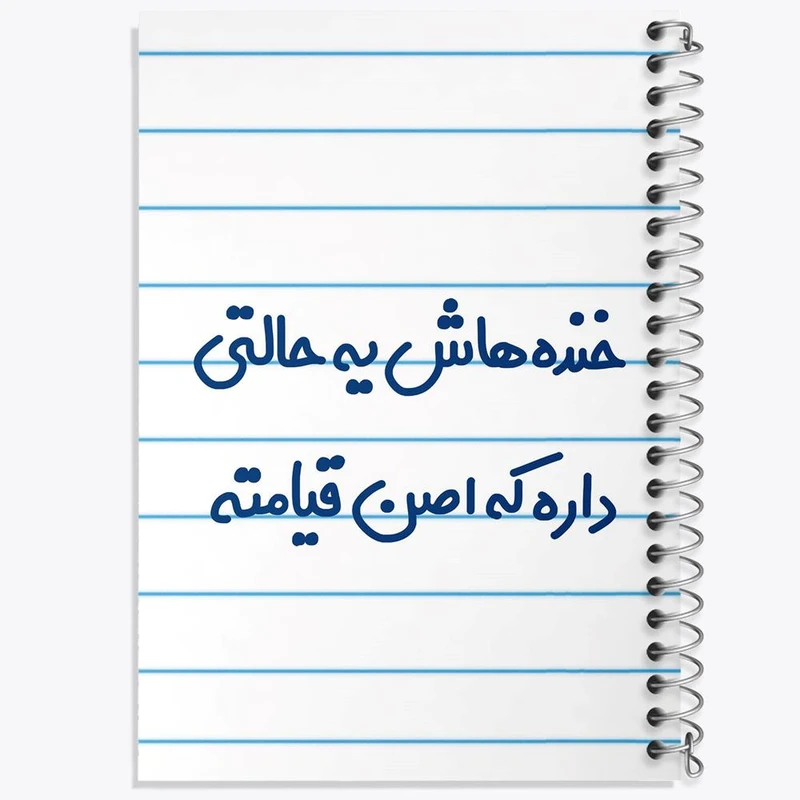 خنده‌هاش یه حالتی
داره که اصن قیامته